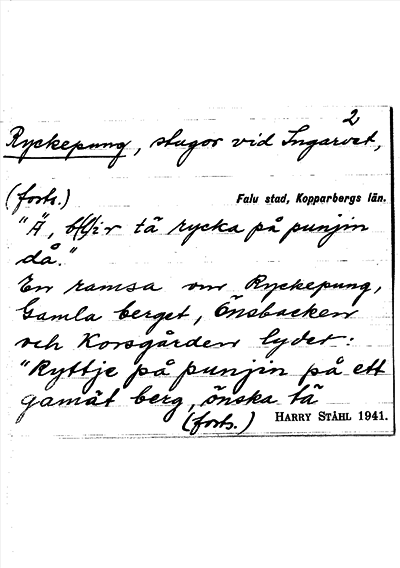 2
Ryckepung, stugor vid Ingarvet,
(forts.)
Falu stad, Kopparbergs län.
"Ä, blir tä rycka på punjin
då."
En ramsa om Ryckepung,
Gamla berget, Önsbacken
och Korsgården lyder:
"Ryttje på punjin på ett
gamät berg, önska tä
(forts.)
HARRY STÅHL 1941.